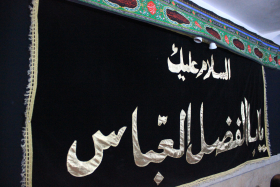 السلام علیك
یا اباالفضل العباس